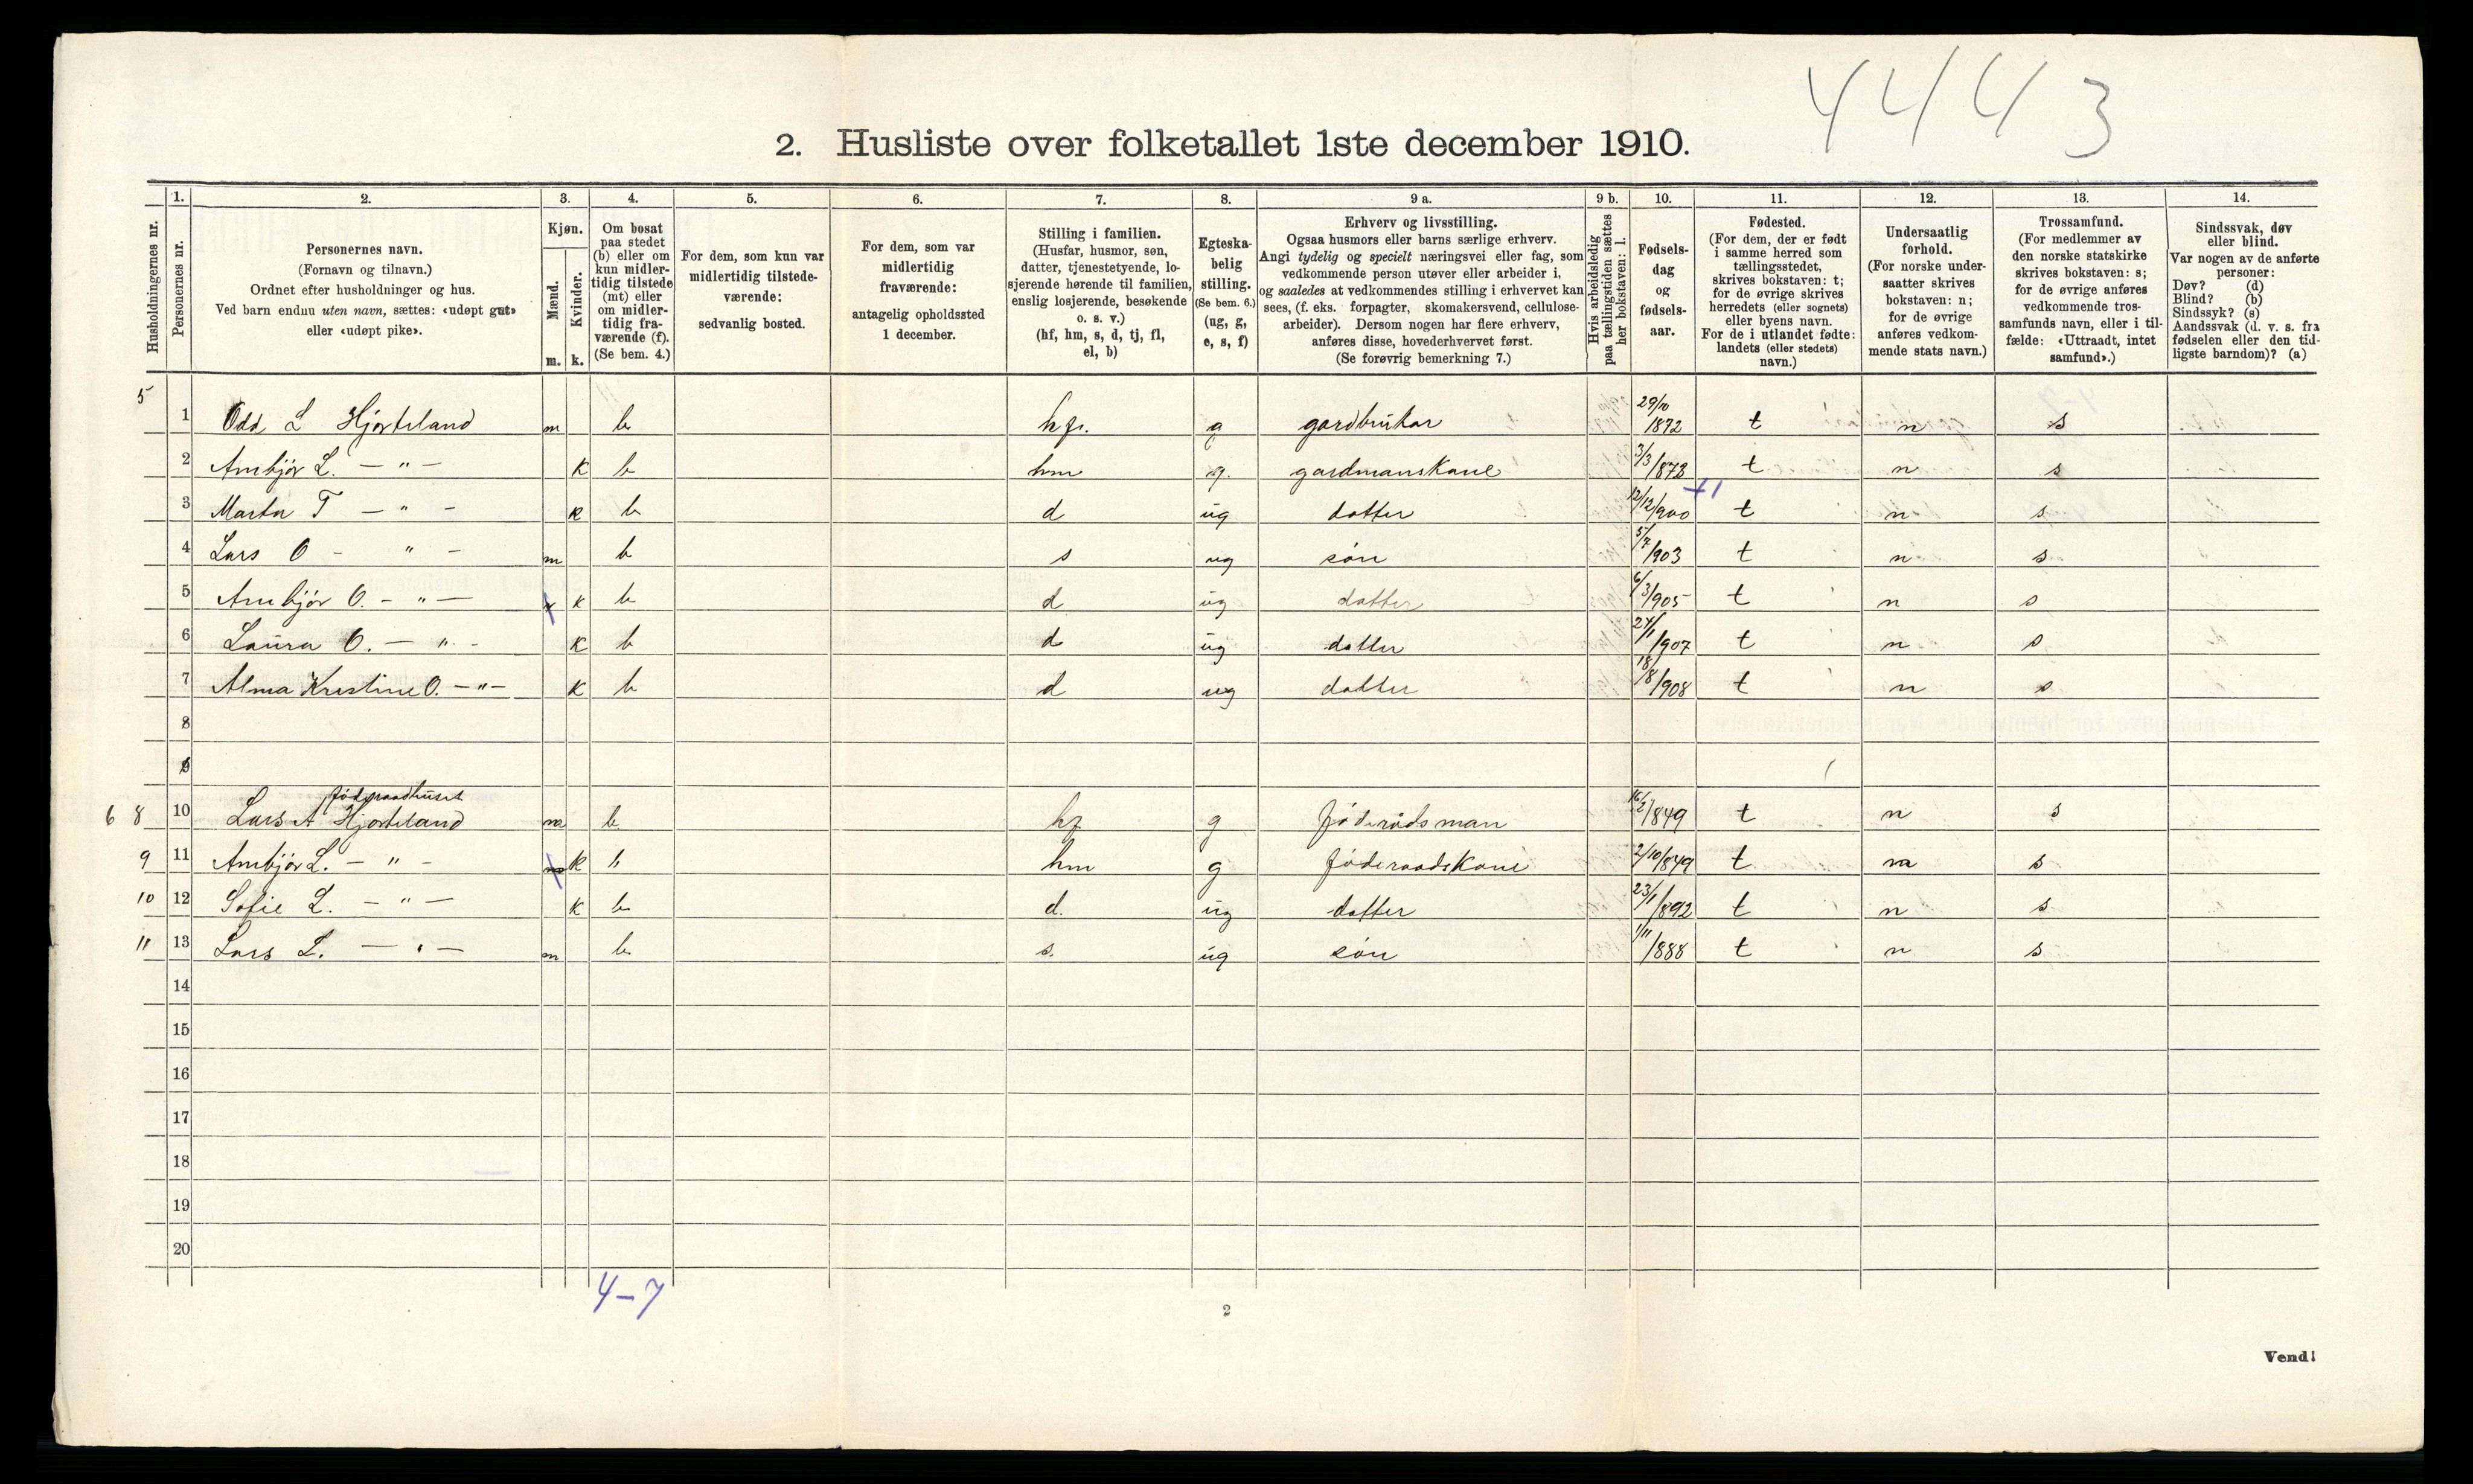 4443
2. Husliste over folketallet 1ste december 1910.
Husholdningernes nr.
1.
Personernes nr.
2.
Personernes navn.
(Fornavn og tilnavn.)
Ordnet efter husholdninger og hus.
Ved barn endnu uten navn, sættes: «udøpt gut»
eller «udøpt pike».
3.
Kjøn.
Mænd.
Kvinder.
m. k.
4.
Om bosat
paa stedet
(b) eller om
kun midler-
tidig tilstede
(mt) eller
om midler-
tidig fra-
værende (f).
(Se bem. 4.)
5.
For dem, som kun var
midlertidig tilstede-
værende:
sedvanlig bosted.
6.
For dem, som var
midlertidig
fraværende:
antagelig opholdssted
1 december.
7.
Stilling i familien.
(Husfar, husmor, søn,
datter, tjenestetyende, lo-
sjerende hørende til familien,
enslig losjerende, besøkende
o. s. v.)
(hf, hm, s, d, tj, fl,
el, b)
8.
Egteska-
belig
stilling.
(Se bem. 6.)
(ug, g,
e, s, f)
9 a.
Erhverv og livsstilling.
Ogsaa husmors eller barns særlige erhverv.
Angi tydelig og specielt næringsvei eller fag, som
vedkommende person utøver eller arbeider i,
og saaledes at vedkommendes stilling i erhvervet kan
sees, (f. eks. forpagter, skomakersvend, cellulose-
arbeider). Dersom nogen har flere erhverv,
anføres disse, hovederhvervet først.
(Se forøvrig bemerkning 7.)
9 b.
Hvis arbeidsledig
paa tællingstiden sættes
her bokstaven: l.
10.
Fødsels-
dag
og
fødsels-
aar.
11.
Fødested.
(For dem, der er født
i samme herred som
tællingsstedet,
skrives bokstaven: t;
for de øvrige skrives
herredets (eller sognets)
eller byens navn.
For de i utlandet fødte:
landets (eller stedets)
navn.)
12.
Undersaatlig
forhold.
(For norske under-
saatter skrives
bokstaven: n;
for de øvrige
anføres vedkom-
mende stats navn.)
13.
Trossamfund.
(For medlemmer av
den norske statskirke
skrives bokstaven: s;
for de øvrige anføres
vedkommende tros-
samfunds navn, eller i til-
fælde: «Uttraadt, intet
samfund».)
14.
Sindssvak, døv
eller blind.
Var nogen av de anførte
personer:
Døv? (d)
Blind? (b)
Sindssyk? (s)
Aandssvak (d. v. s. fra
fødselen eller den tid-
ligste barndom)? (a)
5
1 Odd L Hjorteland m b hf. g gardbrukar 29/10 1872 t n s
2 Ambjør L. — " — k b hm g. gardmanskone 3/3/873 t n s
+1
3 Marta T — " — k b d ug datter 12/12/900 t n s
4 Lars O — " — m b s ug søn 5/7/903 t n s
5 Ambjör O. — " — k b d ug datter 6/3/905 t n s
6 Laura O. — " — k b d ug datter 24/1/907 t n s
7 Alma Kristine O. — " — k b d ug datter 18/8/908 t n s
8
9
föderaadhuset
6 8 10 Lars A Hjorteland m b hf g föderådsman 16/2/849 t n s
9 11 Ambjör L. — " — k b hm g föderaadskone 2/10/849 t n s
10 12 Sofie L. — " — k b d. ug datter 23/1/892 t n s
11 13 Lars L. — " — m b s. ug søn 1/11/888 t n s
14
15
16
17
18
19
20
4—7
2
Vend!